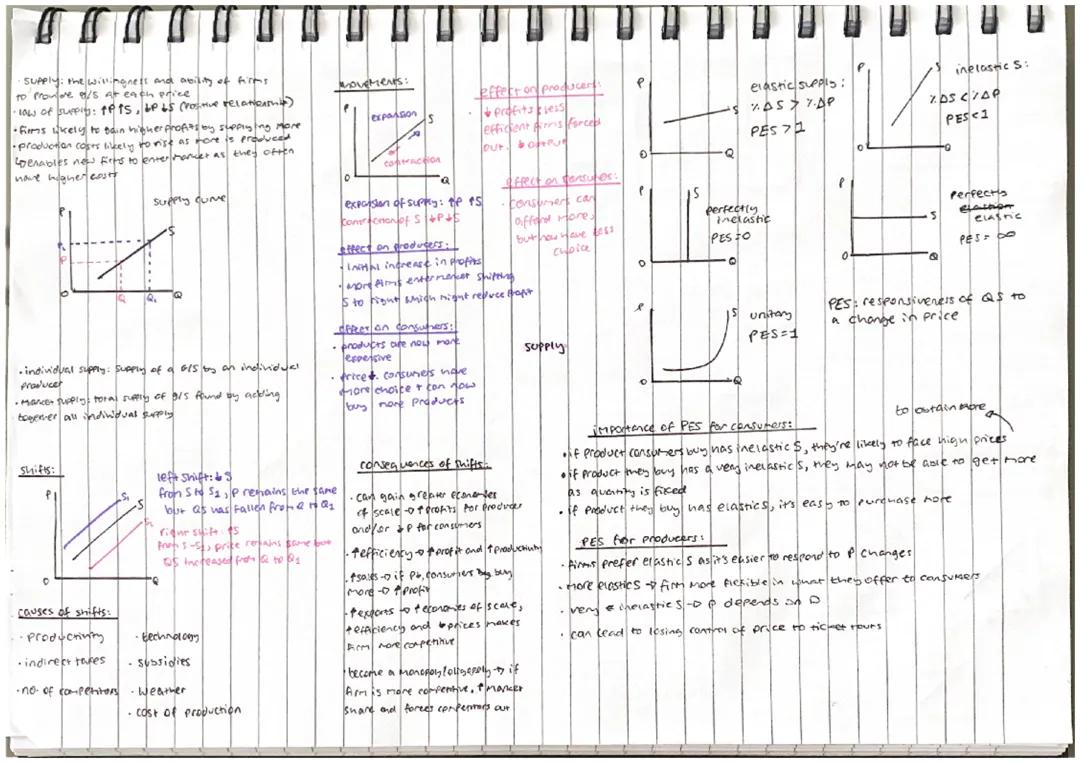 · supply: the willingness and ability of firms
to provide g/s at each price
· law of supply: ↑P ↑S, ↓P ↓S (positive relationship)
· firms likely to gain higher profits by supplying more
· production costs likely to rise as more is produced
↳ enables new firms to enter market as they often
have higher costs
supply curve
P
P₁
P
S
O
Q
Q₁
Q
· individual supply: supply of a G/S by an individual
producer
· market supply: total supply of g/s found by adding
together all individual supply
shifts:
P
S₁
S
S₂
O
Q
left shift: ↓S
from S to S₁, P remains the same
but QS has fallen from Q to Q₁
right shift: ↑S
from S-S₂, price remains same but
QS increased from Q to Q₁
causes of shifts:
· productivity
· indirect taxes
· no. of competitors
· technology
· subsidies
· weather
· cost of production
movements:
P
expansion
S
contraction
O
Q
expansion of supply: ↑P ↑S
contraction of S ↓P ↓S
effect on producers:
· initial increase in profits
· more firms enter market shifting
S to right which might reduce profit
effect on consumers:
· products are now more
expensive
· price↓. consumers have
more choice + can now
buy more products
consequences of shifts:
· can gain greater economies
of scale → ↑profits for producer
and/or ↓P for consumers
· ↑efficiency → ↑profit and ↑productivity
· ↑sales → if P↓, consumers buy
more → ↑profit
· ↑exports → ↑economies of scale,
↑efficiency and ↓prices makes
firm more competitive
· become a monopoly/oligopoly → if
firm is more competitive, ↑market
share and forces competitors out
effect on producers:
· ↓profits & less
efficient firms forced
out. ↓output
effect on consumers:
· consumers can
afford more,
but now have less
choice
supply
P
S
O
Q
elastic supply:
%ΔS > %ΔP
PES>1
P
S
O
Q
inelastic S:
%ΔS < %ΔP
PES<1
P
S
O
Q
perfectly
inelastic
PES=0
P
S
O
Q
perfectly
elastic
PES= ∞
P
S
O
Q
unitary
PES=1
PES: responsiveness of QS to
a change in price
importance of PES for consumers:
to obtain more
· if product consumers buy has inelastic S, they're likely to face high prices
· if product they buy has a very inelastic S, they may not be able to get more
as quantity is fixed
· if product they buy has elastic S, it's easy to purchase more
PES for producers:
· firms prefer elastic S as it's easier to respond to P changes
· more elastic S → firm more flexible in what they offer to consumers
· very inelastic S → P depends on D
· can lead to losing control of price to ticket touts